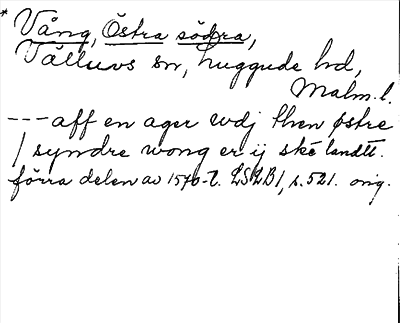 * Vång, Östra södra,
Välluvs sn, Luggude hd,
Malm. l.
--- aff en ager wdj then østre
/ syndre wong er ij ske landtt.
förra delen av 1570-t. LSLB1, s. 521. orig.